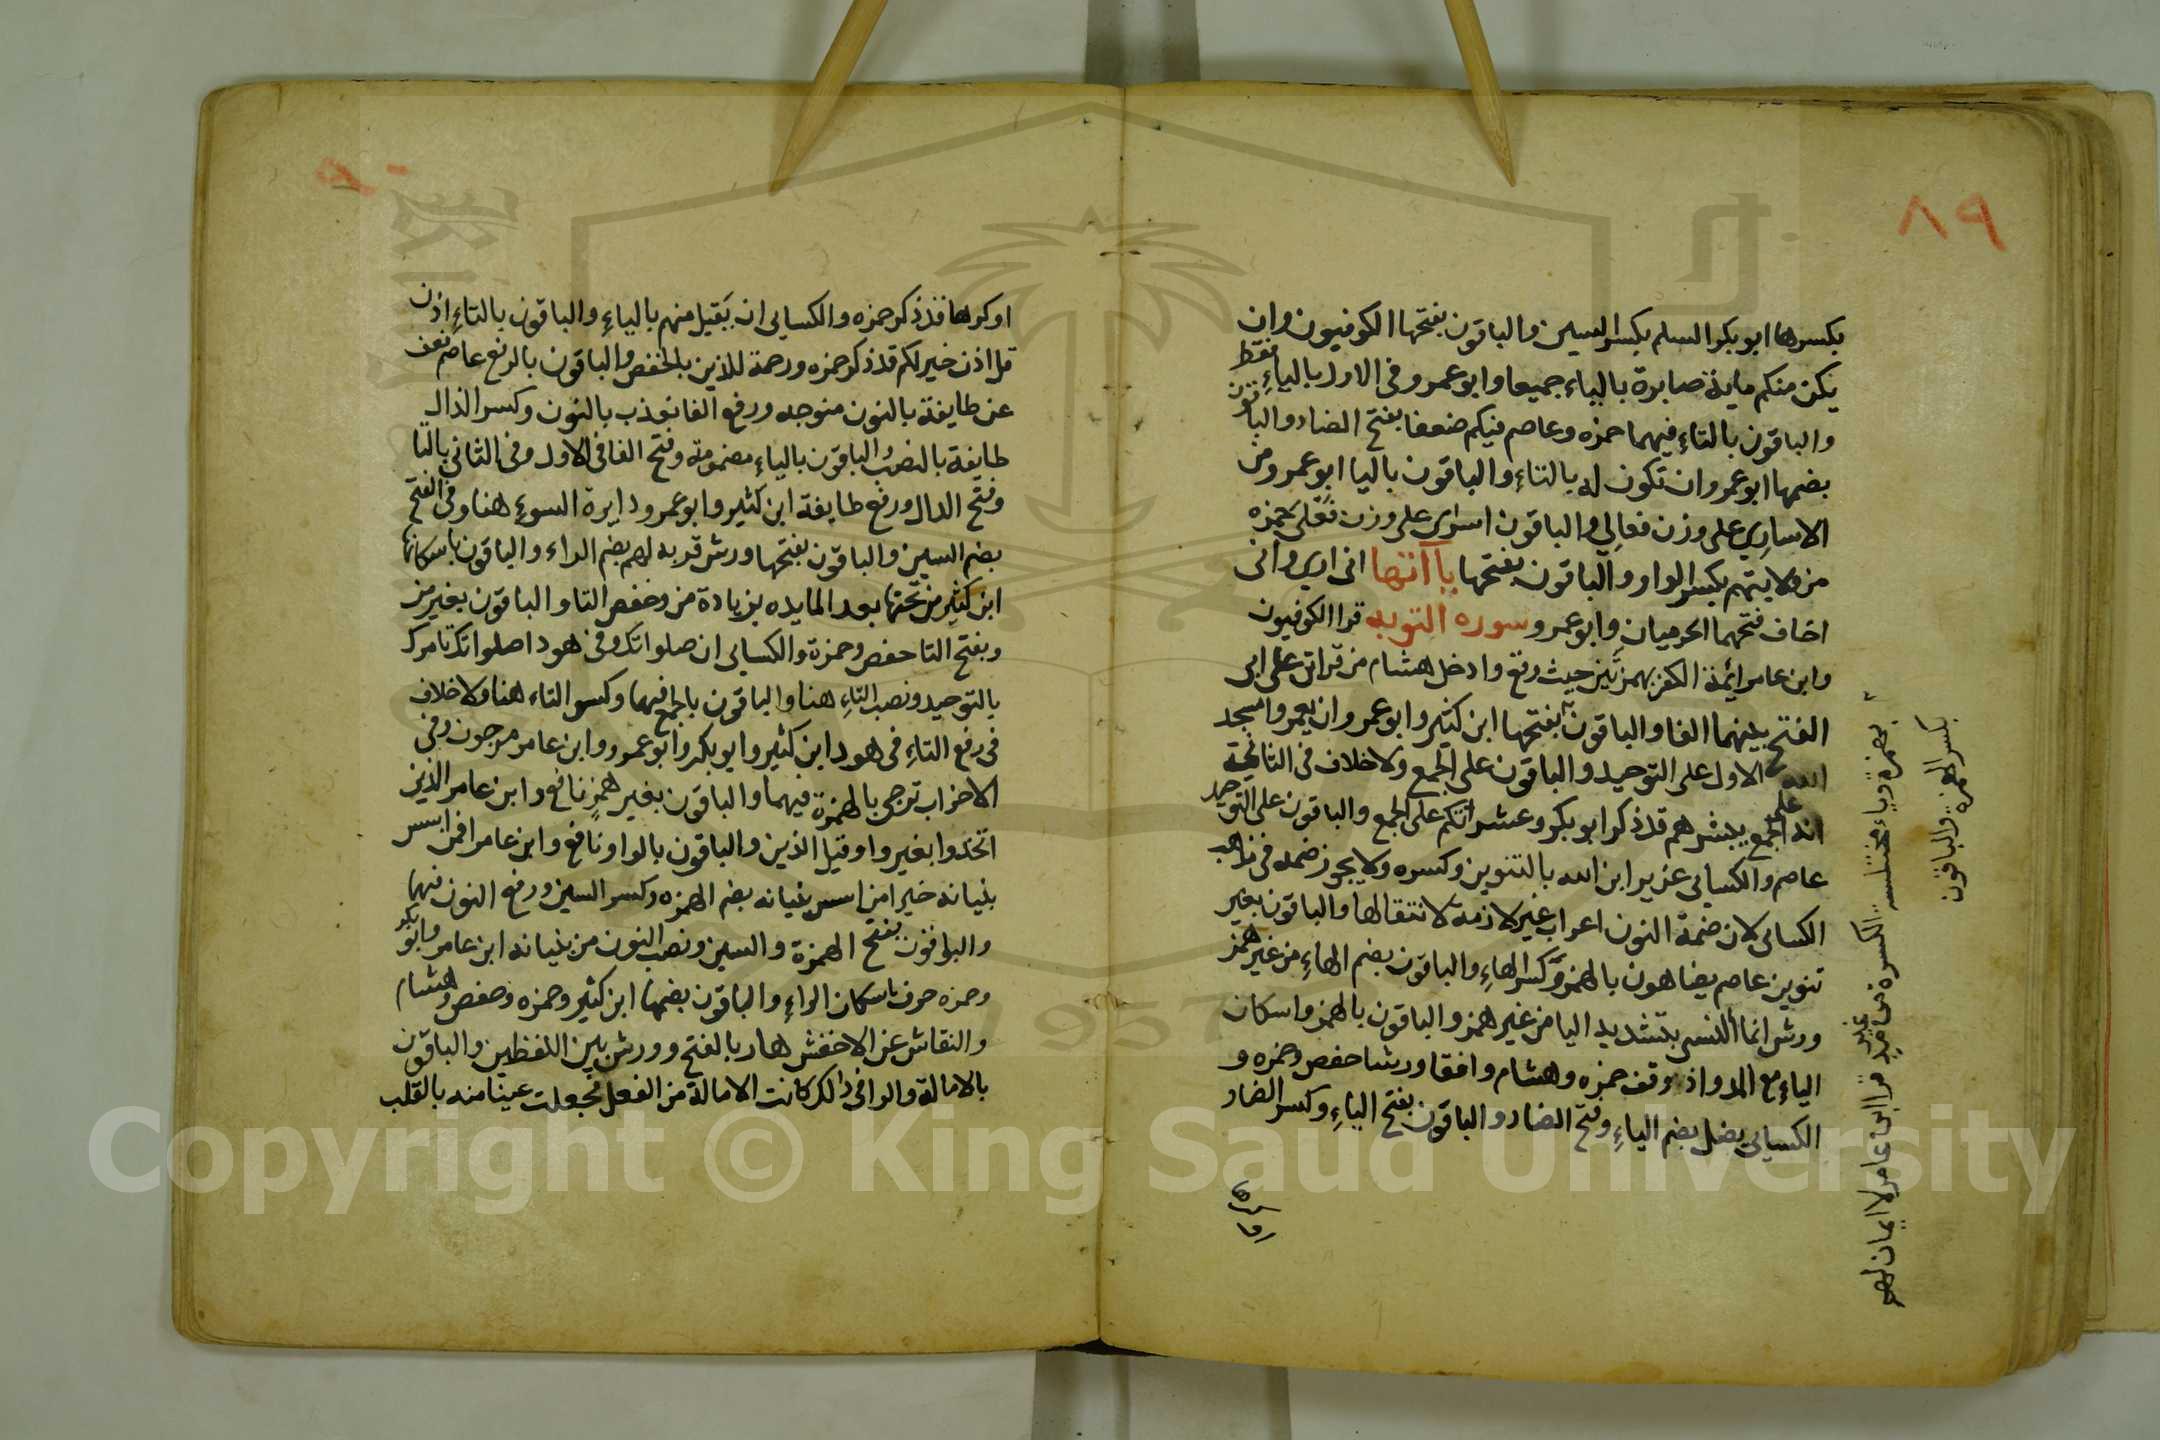 ٨٩
بكسرها ابو بكر السلم بكسر السين والباقون بفتحها الكوفيون وان
يكن منكم ماية صابرة بالياء جميعا وابو عمرو في الاول بالياء فقط
والباقون بالتاء فيهما حمزه وعاصم فيكم ضعفا بفتح الضاد والباقون
بضمها ابو عمرو ان تكون له بالتاء والباقون باليا ابو عمرو من
الاساري على وزن فعالي والباقون اسرى على وزن فعلى حمزه
من ولايتهم بكسر الواو والباقون بفتحها يا آتها اني اري واني
اخاف فتحهما الحرميان وابو عمرو سوره التوبه قرا الكوفيون
وابن عامر ائمة الكفر بهمزتين حيث وقع وادخل هشام من قراتي على ابي
الفتح بينهما الفا والباقون بفتحها ابن كثير وابو عمرو ان يعمروا مسجد
الله الاول على التوحيد والباقون على الجمع ولا خلاف في الثاني
انه على الجمع يبشرهم قد ذكر ابو بكر وعشيراتكم على الجمع والباقون على التوحيد
عاصم والكسائي عزير ابن الله بالتنوين وكسره ولا يجوز ضمه في مذهب
الكسائي لان ضمة النون اعراب غير لازمة لانتقالها والباقون بغير
تنوين عاصم يضاهون بالهمز وكسر الهاء والباقون بضم الهاء من غير همز
ورش انما النسي بتشديد اليا من غير همز والباقون بالهمز واسكان
الياء مع المد واذا وقف حمزه وهشام وافقا ورشا حفص وحمزه و
الكسائي يضل بضم الياء وفتح الضاد والباقون بفتح الياء وكسر الضاد
قرا ابن عامر لا ايمان لهم
بكسر الهمزة والباقون
او كرها قد ذكر حمزه والكسائي ان يقبل منهم بالياء والباقون بالتاء اذن
قل اذن خير لكم قد ذكر حمزه ورحمة للذين بالخفض والباقون بالرفع عاصم نعف
عن طايفة بالنون مفتوحه ورفع الفا نعذب بالنون وكسر الذال
طايفة بالنصب والباقون بالياء مضمومة وفتح الفا في الاول وفي الثاني بالتا
وفتح الدال ورفع طايفة ابن كثير وابو عمرو دايرة السوء هنا وفي الفتح
بضم السين والباقون بفتحها ورش قربه لهم بضم الراء والباقون باسكانها
ابن كثير من تحتها بعد المايه بزيادة من وخفض التا والباقون بغير من
وبفتح التا حفص وحمزة والكسائي ان صلواتك وفي هود اصلواتك تامرك
بالتوحيد ونصب التاء هنا والباقون بالجمع فيهما وكسر التاء هنا ولا خلاف
في رفع التاء في هود ابن كثير وابو بكر وابو عمرو وابن عامر مرجون وفي
الاحزاب ترجى بالهمزة فيهما والباقون بغير همز نافع وابن عامر الذين
اتخذوا بغير واو قبل الذين والباقون بالواو نافع وابن عامر افمن اسس
بنيانه خير امن اسس بنيانه بضم الهمزه وكسر السين ورفع النون فيهما
والباقون بفتح الهمزة والسين ونصب النون من بنيانه ابن عامر وابو بكر
وحمزه جرف باسكان الراء والباقون بضمها ابن كثير وحمزه وحفص وهشام
والنقاش عن الاخفش هار بالفتح وورش بين اللفظين والباقون
بالامالة والرا في ذلك كانت الامالة من الفعل فجعلت عينا منه بالقلب
Copyright © King Saud University
1957